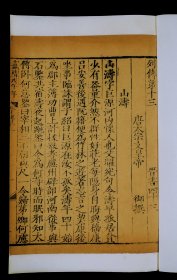 列傳第十三
晉書四十三
唐太宗文皇帝 御撰
山濤
山濤字巨源河內懷人也父曜宛句令濤早孤居貧
少有器量介然不群性好莊老每隱身自晦與嵇康
呂安善後遇阮籍便為竹林之交著忘言之契康後
坐事臨誅謂子紹曰巨源在汝不孤矣濤年四十始
為郡主簿功曹上計掾舉孝廉州辟部河南從事與
石鑒共宿濤夜起蹴鑒曰今為何等時而眠邪知太
傅臥何意鑒曰宰相三不朝與尺一令歸第卿何慮